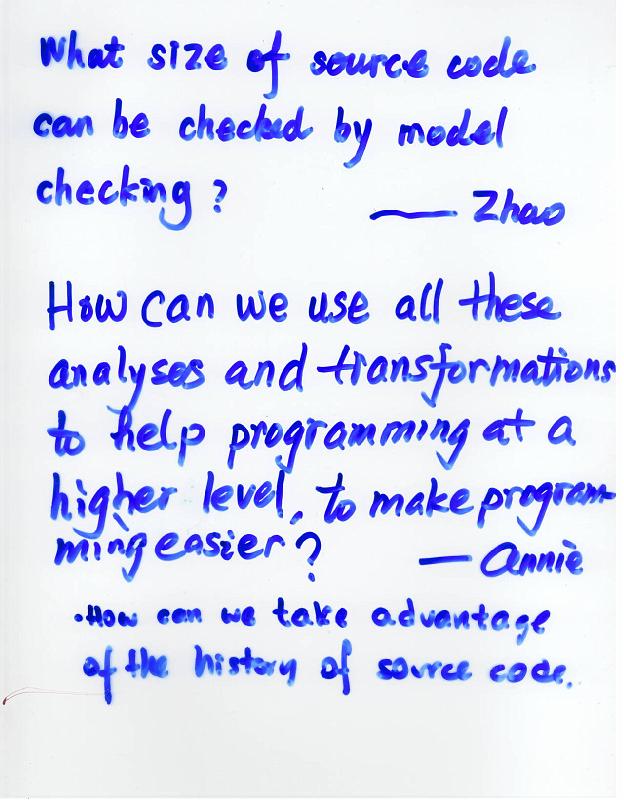 What size of source code
can be checked by model
checking?
— Zhao
How can we use all these
analyses and transformations
to help programming at a
higher level, to make program-
ming easier?
— Annie
• How can we take advantage
of the history of source code.